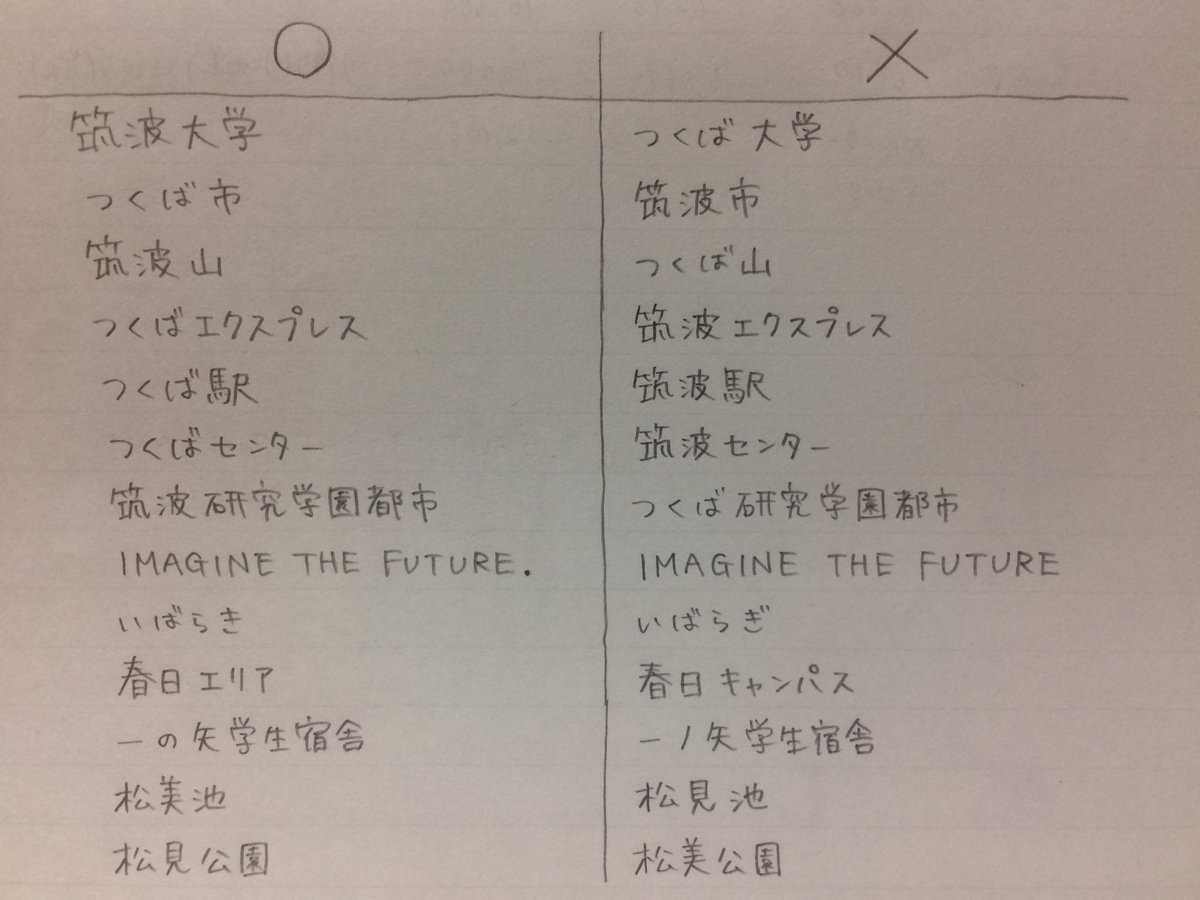 ○ ×
筑波大学 つくば大学
つくば市 筑波市
筑波山 つくば山
つくばエクスプレス 筑波エクスプレス
つくば駅 筑波駅
つくばセンター 筑波センター
筑波研究学園都市 つくば研究学園都市
IMAGINE THE FUTURE. IMAGINE THE FUTURE
いばらき いばらぎ
春日エリア 春日キャンパス
一の矢学生宿舎 一ノ矢学生宿舎
松美池 松見池
松見公園 松美公園